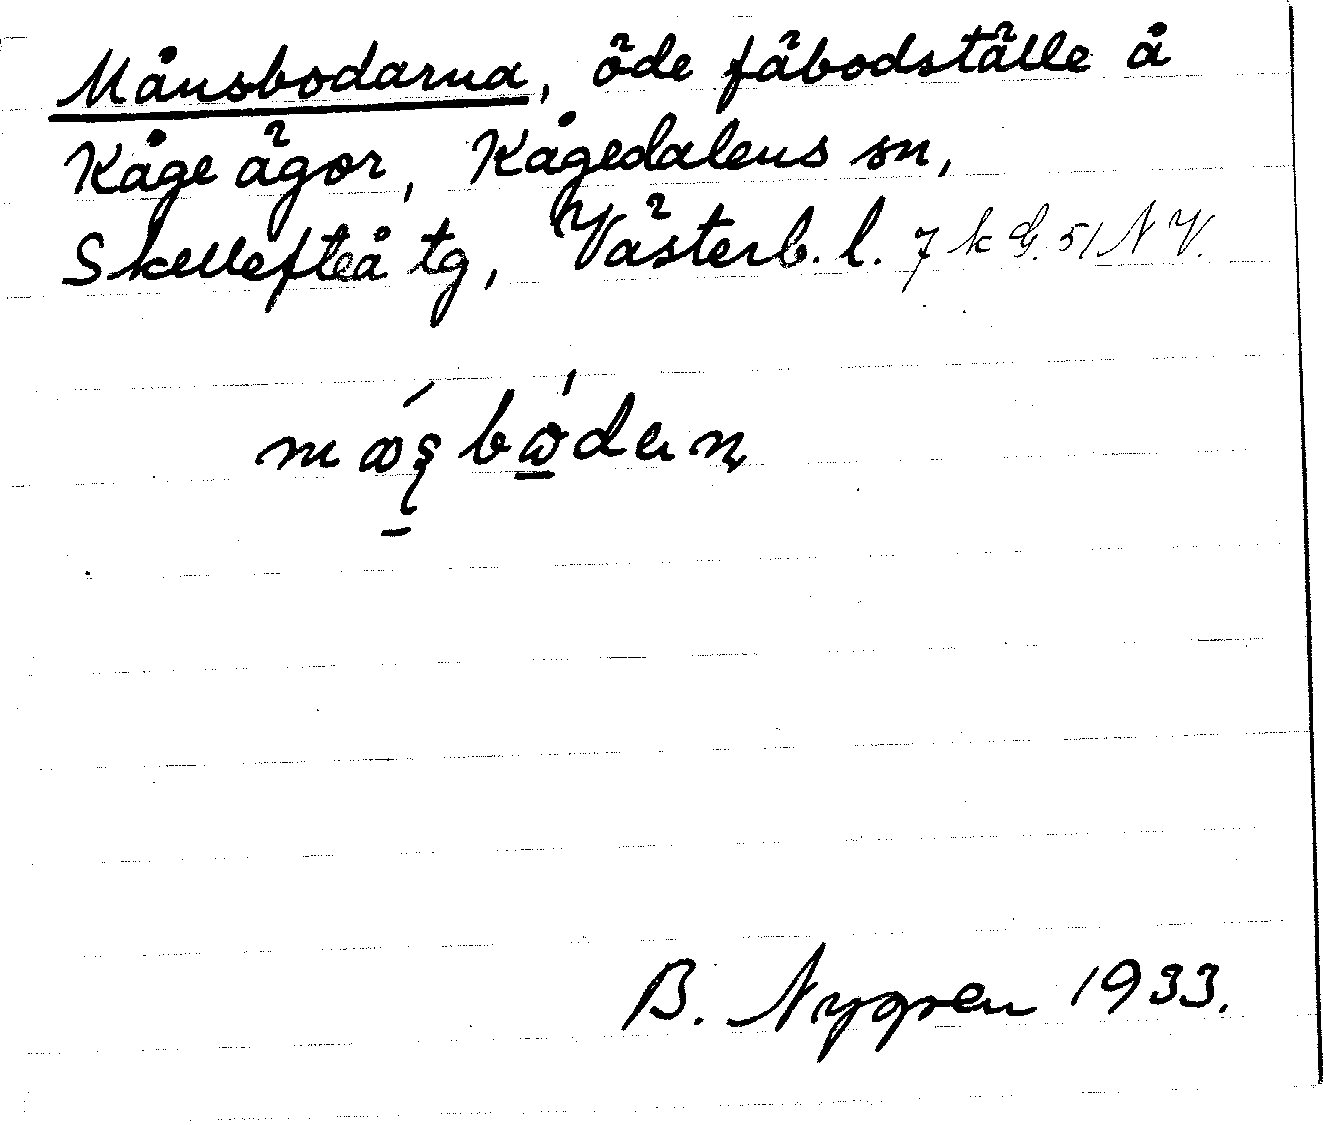 Månsbodarna, öde fäbodställe å
Kåge ägor, Kågedalens sn,
Skellefteå tg, Västerb. l. 7 k G. 51 N V.
B. Nygren 1933.